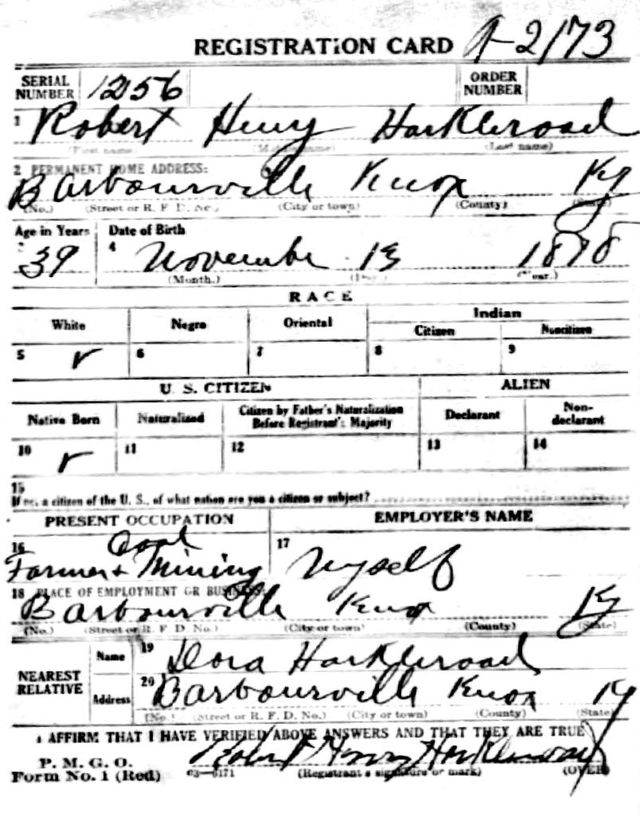 REGISTRATION CARD A-2173
SERIAL NUMBER 1256 ORDER NUMBER
1 Robert Henry Harkleroad
(First name) (Middle name) (Last name)
2 PERMANENT HOME ADDRESS:
Barbourville Knox Ky
(No.) (Street or R. F. D. No.) (City or town) (County) (State)
Age in Years Date of Birth
3 39 4 November 13 1878
(Month.) (Day.) (Year.)
RACE
White Negro Oriental Indian
Citizen Noncitizen
5 ✓ 6 7 8 9
U. S. CITIZEN ALIEN
Native Born Naturalized Citizen by Father's Naturalization Before Registrant's Majority Declarant Non-declarant
10 ✓ 11 12 13 14
15
If not a citizen of the U. S., of what nation are you a citizen or subject?
PRESENT OCCUPATION EMPLOYER'S NAME
16 Coal 17
Farmer + Mining Myself
18 PLACE OF EMPLOYMENT OR BUSINESS:
Barbourville Knox Ky
(No.) (Street or R. F. D. No.) (City or town) (County) (State)
NEAREST RELATIVE Name 19 Dora Harkleroad
Address 20 Barbourville Knox Ky
(No.) (Street or R. F. D. No.) (City or town) (County) (State)
I AFFIRM THAT I HAVE VERIFIED ABOVE ANSWERS AND THAT THEY ARE TRUE
P. M. G. O.
Form No. 1 (Red) 03—6171 Robert Henry Harkleroad
(Registrant's signature or mark) (OVER)